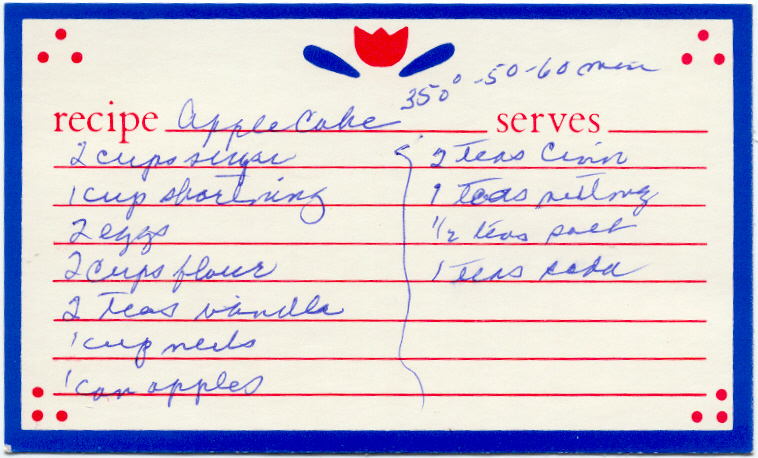 350° - 50-60 min
recipe Apple Cake serves
2 cups sugar
1 cup shortning
2 eggs
2 cups flour
2 Teas vanilla
1 cup nuts
1 can apples
2 Teas Cinn
1 Teas nutmg
1/2 teas salt
1 teas soda